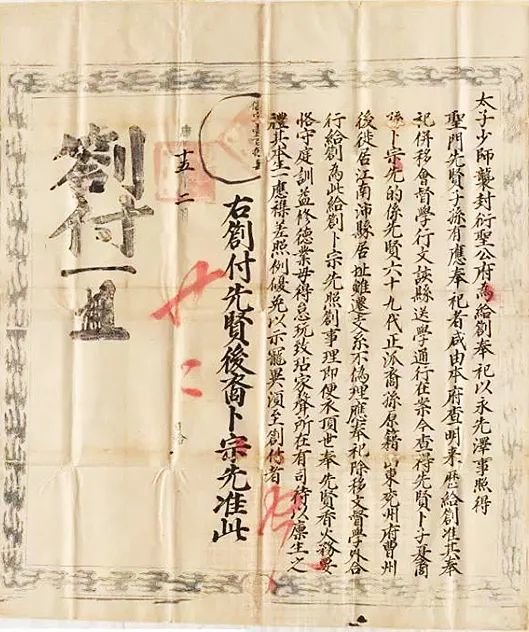 太子少師襲封衍聖公府為給劄奉祀以永先澤事照得
聖門先賢子孫有應奉祀者咸由本府查明來歷給劄准其奉
祀併移會督學行文該縣送學通行在案今查得先賢卜子夏裔
孫卜宗先的係先賢六十九代正派裔孫原籍山東兗州府曹州
後徙居江南沛縣居址雖遷支系不偽理應奉祀除移文督學外合
行給劄為此給劄卜宗先照劄事理即便承頂世奉先賢香火務要
恪守庭訓益修德業毋得怠玩致玷家聲所在有司待以廩生之
禮其本生一應襍差照例優免以示寵異須至劄付者
右劄付先賢後裔卜宗先准此
十五 二
劄付